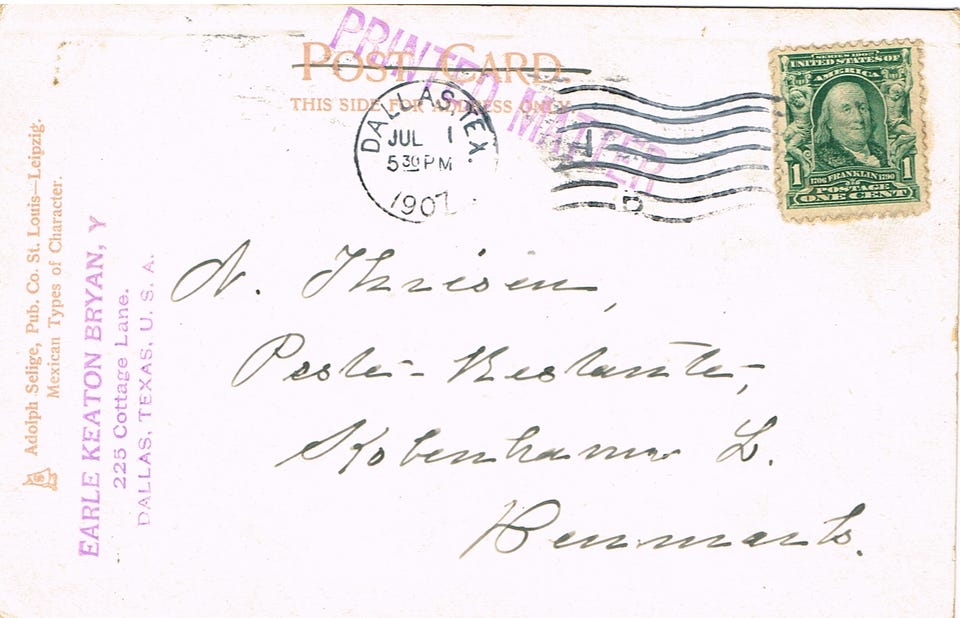 PRINTED MATTER
POST CARD
THIS SIDE FOR ADDRESS ONLY.
DALLAS, TEX.
JUL 1
5 30 PM
1907
SERIES 1902
UNITED STATES OF
AMERICA
1706 FRANKLIN 1790
1 POSTAGE 1
ONE CENT
Adolph Selige, Pub. Co. St. Louis—Leipzig.
Mexican Types of Character.
EARLE KEATON BRYAN, Y
225 Cottage Lane.
DALLAS, TEXAS, U. S. A.
N. Thrisen,
Poste-Restante,
Kobenhavn L.
Denmark.